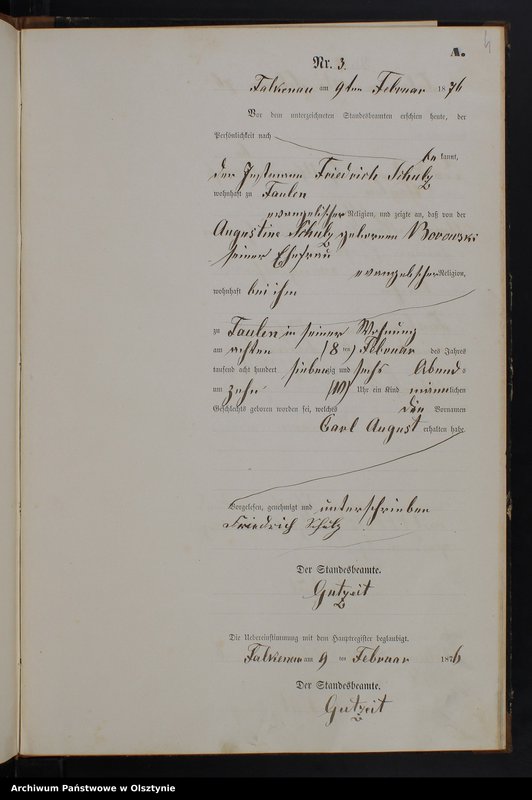 A.
4
Nr. 3.
Falkenau am 9ten Februar 1876
Vor dem unterzeichneten Standesbeamten erschien heute, der
Persönlichkeit nach
be kannt,
der Instmann Friedrich Schulz
wohnhaft zu Taulen
evangelischer Religion, und zeigte an, daß von der
Augustine Schulz geborenen Borowski
seiner Ehefrau
evangelischer Religion,
wohnhaft bei ihm
zu Taulen in seiner Wohnung
am achten (8ten) Februar des Jahres
tausend acht hundert siebenzig und sechs Abends
um zehn (10) Uhr ein Kind männlichen
Geschlechts geboren worden sei, welches die Vornamen
Carl August erhalten habe.
Vorgelesen, genehmigt und unterschrieben
Friedrich Schulz
Der Standesbeamte.
Gutzeit
Die Uebereinstimmung mit dem Hauptregister beglaubigt.
Falkenau am 9 ten Februar 1876
Der Standesbeamte.
Gutzeit
Archiwum Państwowe w Olsztynie